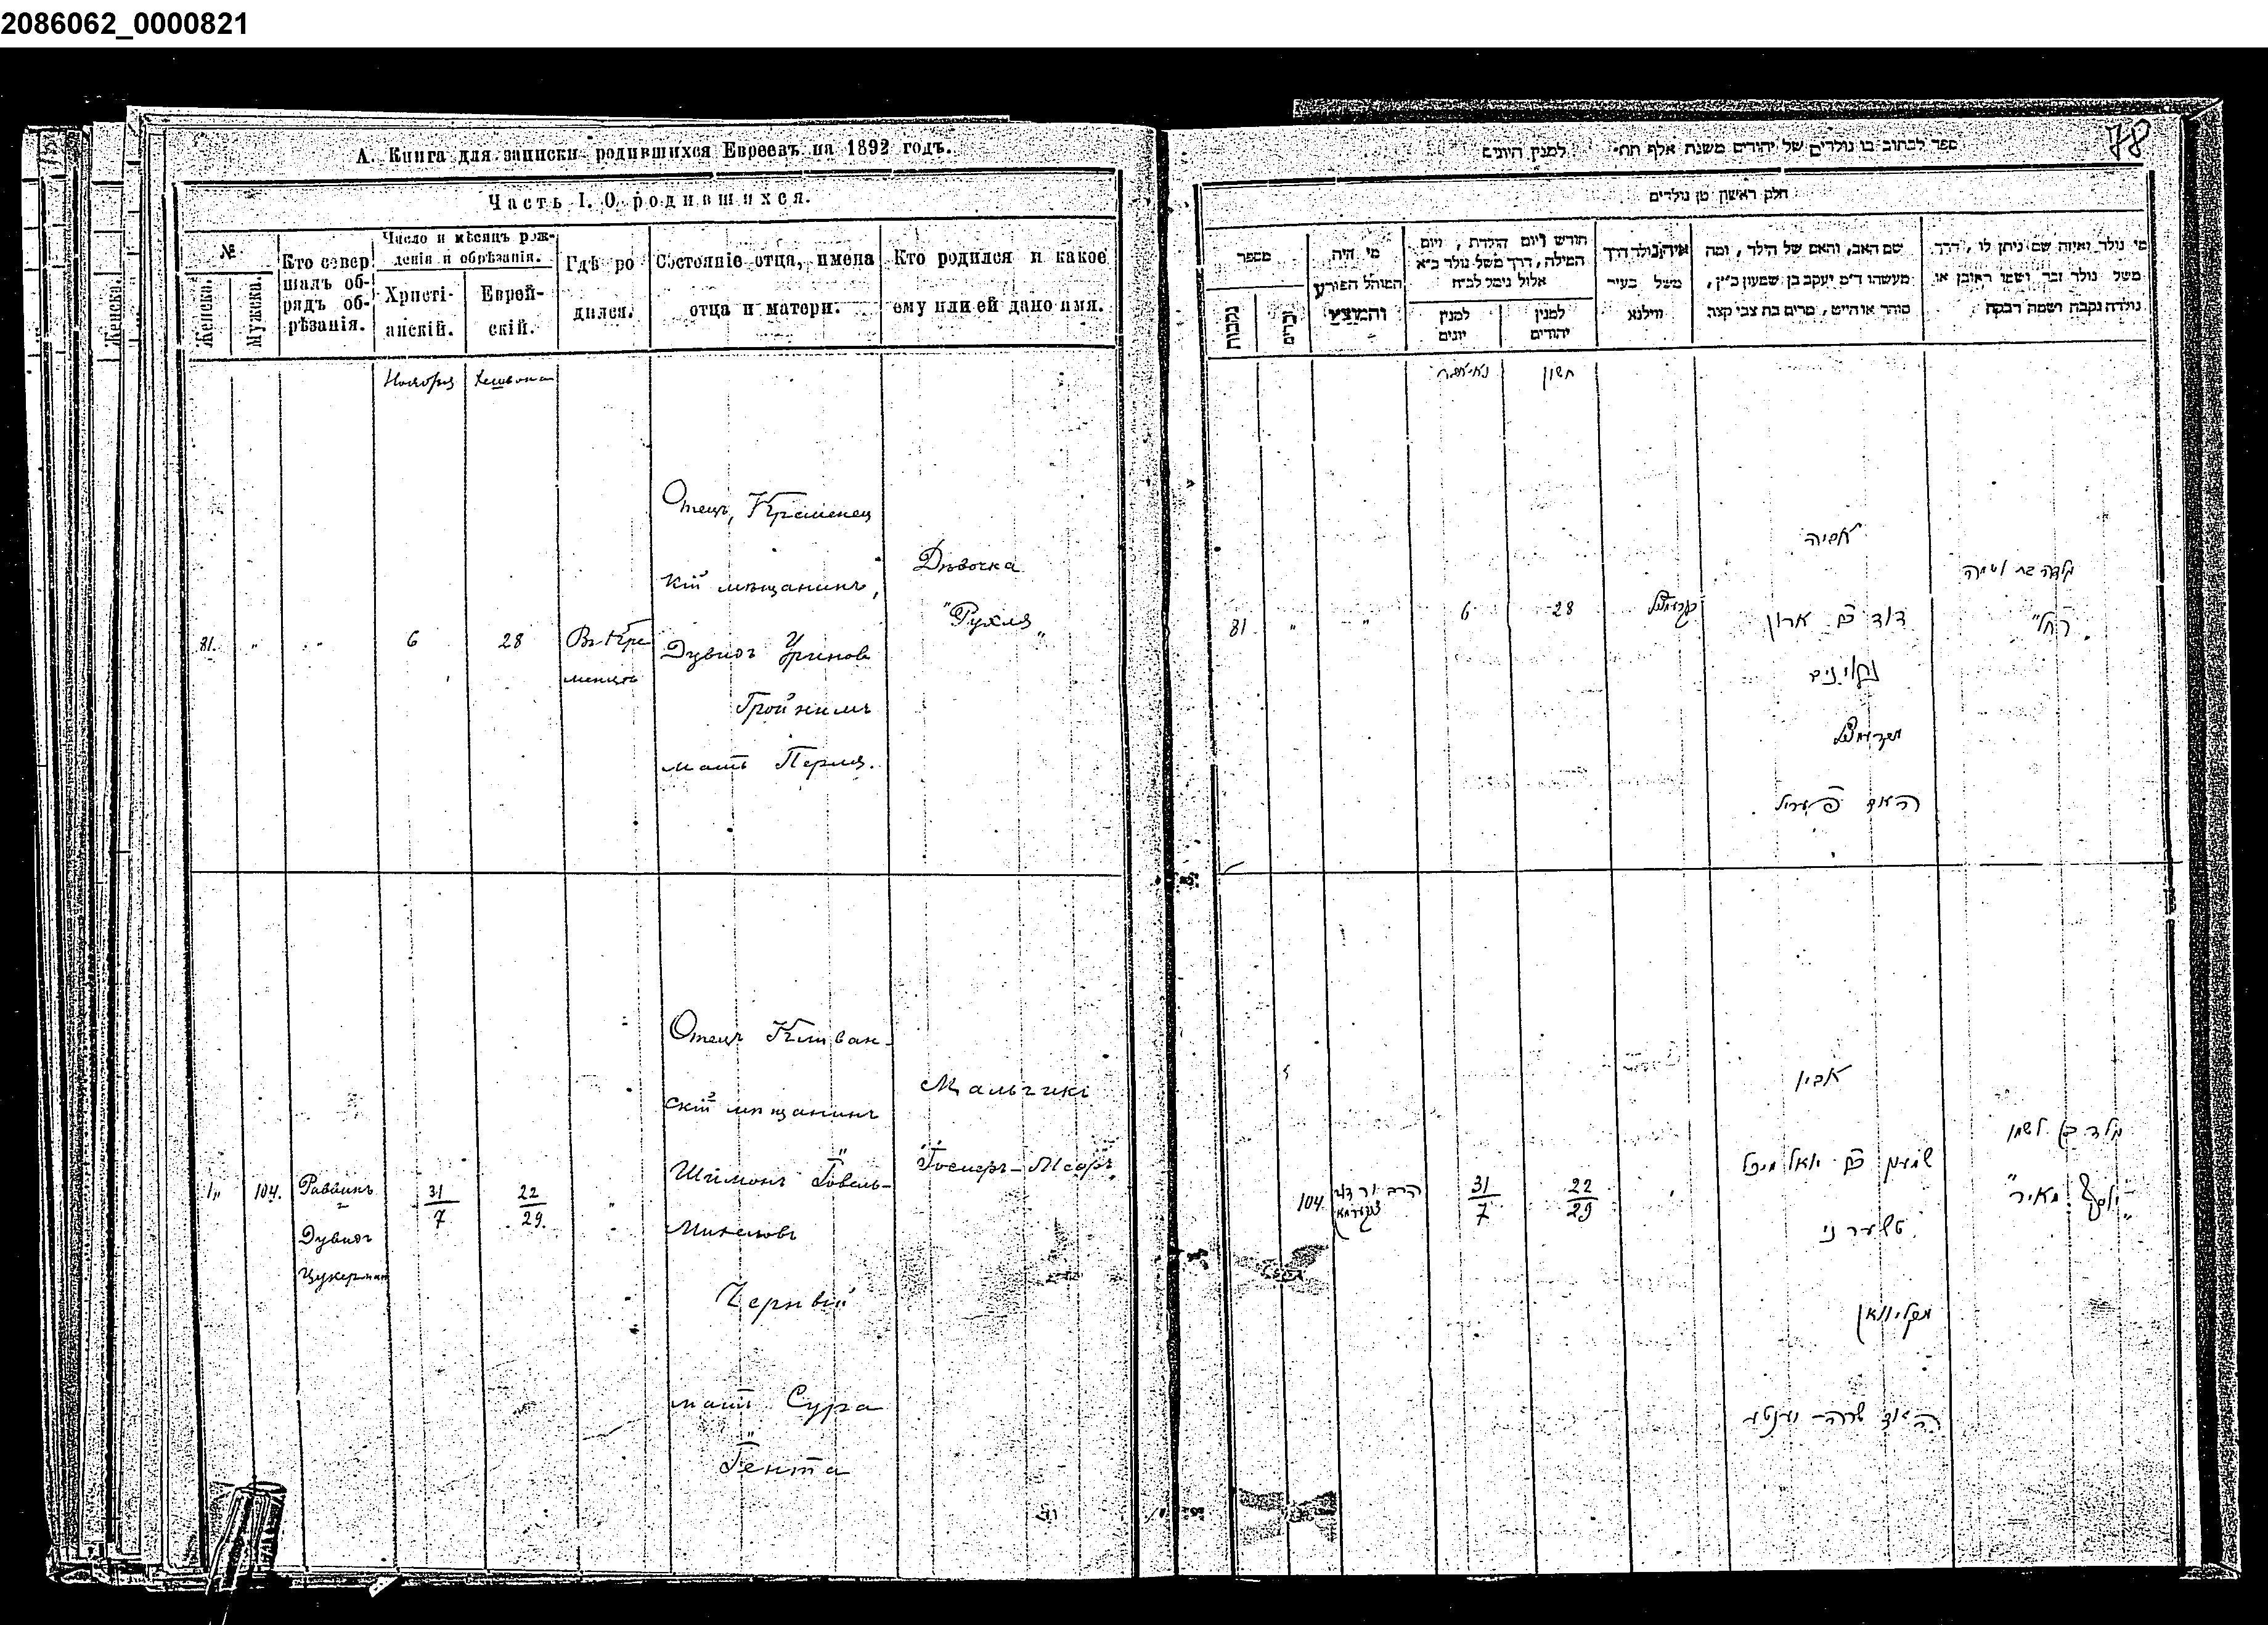 2086062_0000821
А. Книга для записки родившихся Евреевъ на 1892 годъ.
Часть I. О родившихся.
№
Женска.
Мужска.
Кто совер
шалъ об-
рядъ об-
рѣзанія.
Число и мѣсяцъ рож-
денія и обрѣзанія.
Христі-
анскій.
Еврей-
скій.
Гдѣ ро
дился.
Состояніе отца, имена
отца и матери.
Кто родился и какое
ему или ей дано имя.
Ноября
Хешвона
81.
6
28
Въ Кре
менцѣ
Отецъ, Кременец
кій мѣщанинъ,
Дувидъ
Гройнимъ
мать Перля.
Дѣвочка
"Рухля"
104.
Раввинъ
Дувидъ
Цукерман
31
7
22
29.
Отецъ Клеван-
скій мѣщанинъ
Шимонъ Іовель-
Михелевъ
Черный
мать Сура
Іента
Мальчикъ
78
ספר לכתוב בו נולדים של יהודים משנת אלף תת״ למנין היונים
חלק ראשון מן נולדים
מספר
נקבות
זכרים
מי היה
המוהל הפורע
והמוצץ
חודש ויום הולדת, ויום
המילה, דרך משל נולד כ״א
אלול נימל לכ״ח
למנין
יונים
למנין
יהודים
איה נולד דרך
משל בעיר
ווילנא
שם האב, והאם של הילד, ומה
מעשהו ד״מ יעקב בן שמעון כ״ץ,
סוחר או חייט, מרים בת צבי קצב
מי נולד ואיזה שם ניתן לו, דרך
משל נולד זכר ושמו ראובן או
נולדה נקבה ושמה רבקה
חשון
81
6
28
אביה
דוד בן ארון
רחל"
104
31
7
22
29
אביו
שמעון בן יואל מיכל
טשערני